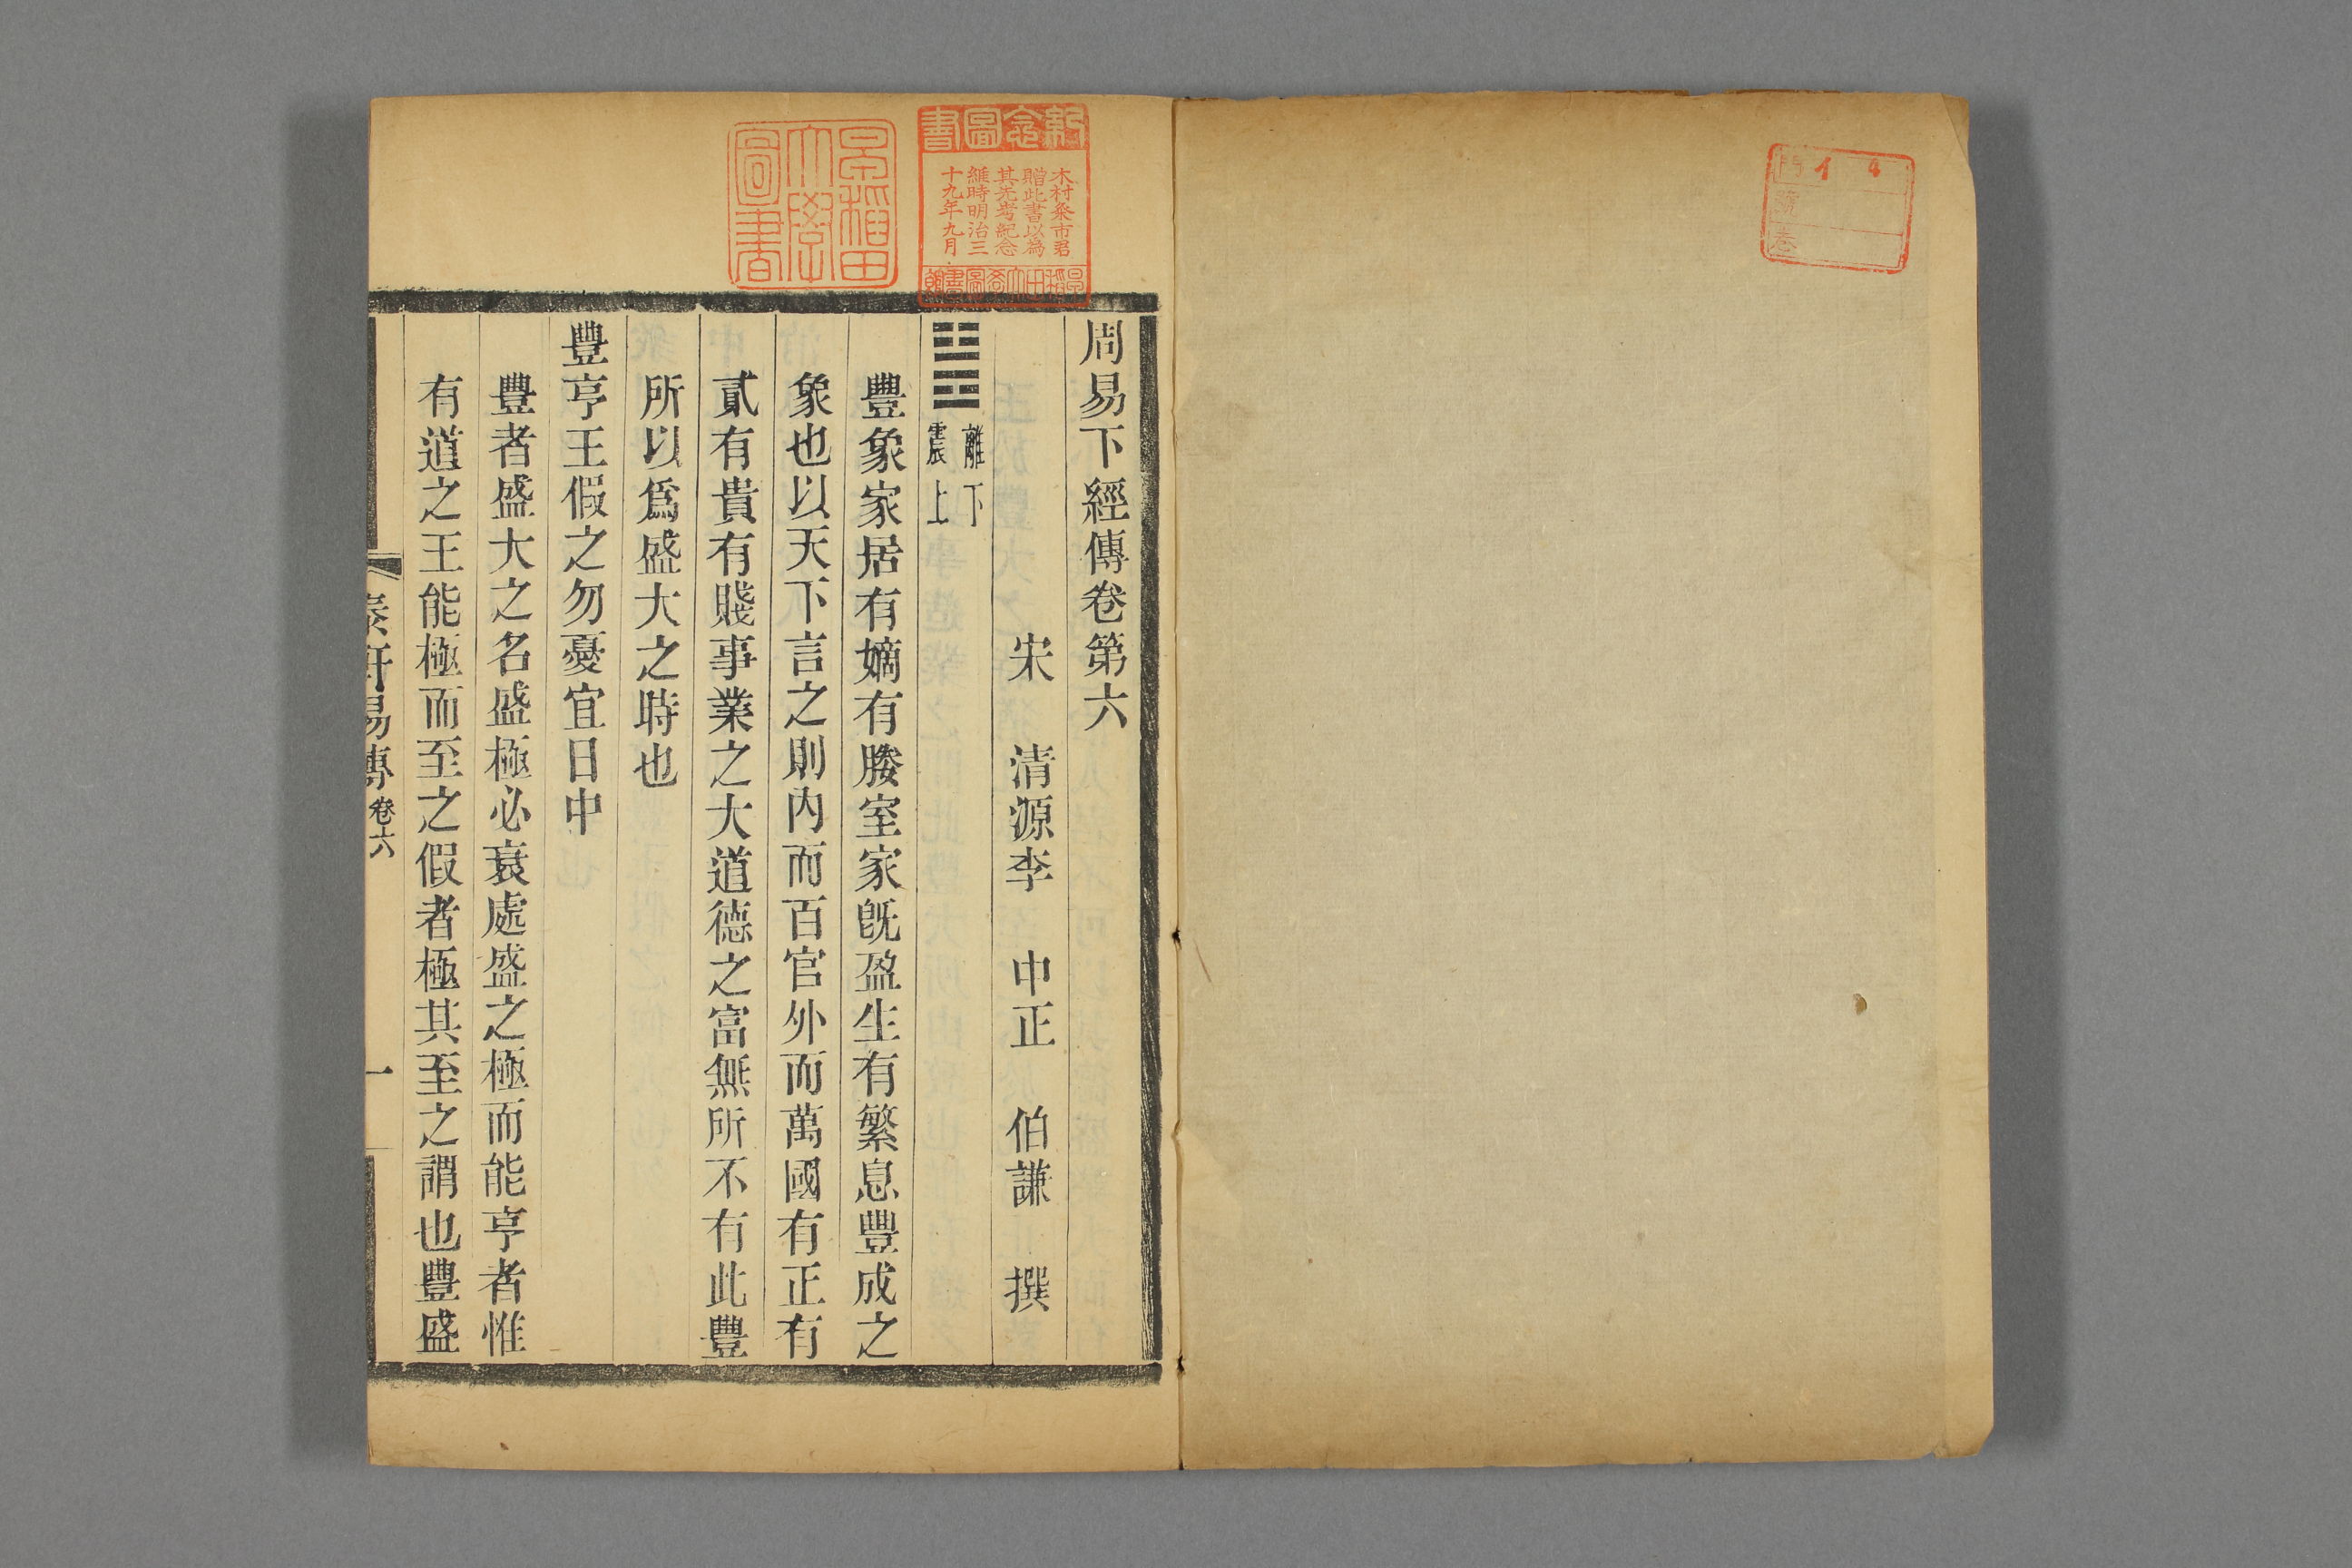 周易下經傳卷第六
宋 清源李 中正 伯謙 撰
䷶ 離下
震上
豐象家居有嫡有媵室家旣盈生有繁息豐成之
象也以天下言之則內而百官外而萬國有正有
貳有貴有賤事業之大道德之富無所不有此豐
所以爲盛大之時也
豐亨王假之勿憂宜日中
豐者盛大之名盛極必衰處盛之極而能亨者惟
有道之王能極而至之假者極其至之謂也豐盛
泰軒易傳 卷六 一
木村粂市君
贈此書以為
其先考紀念
維時明治三
十九年九月
早稻田大學圖書
門 イ 4
號
卷